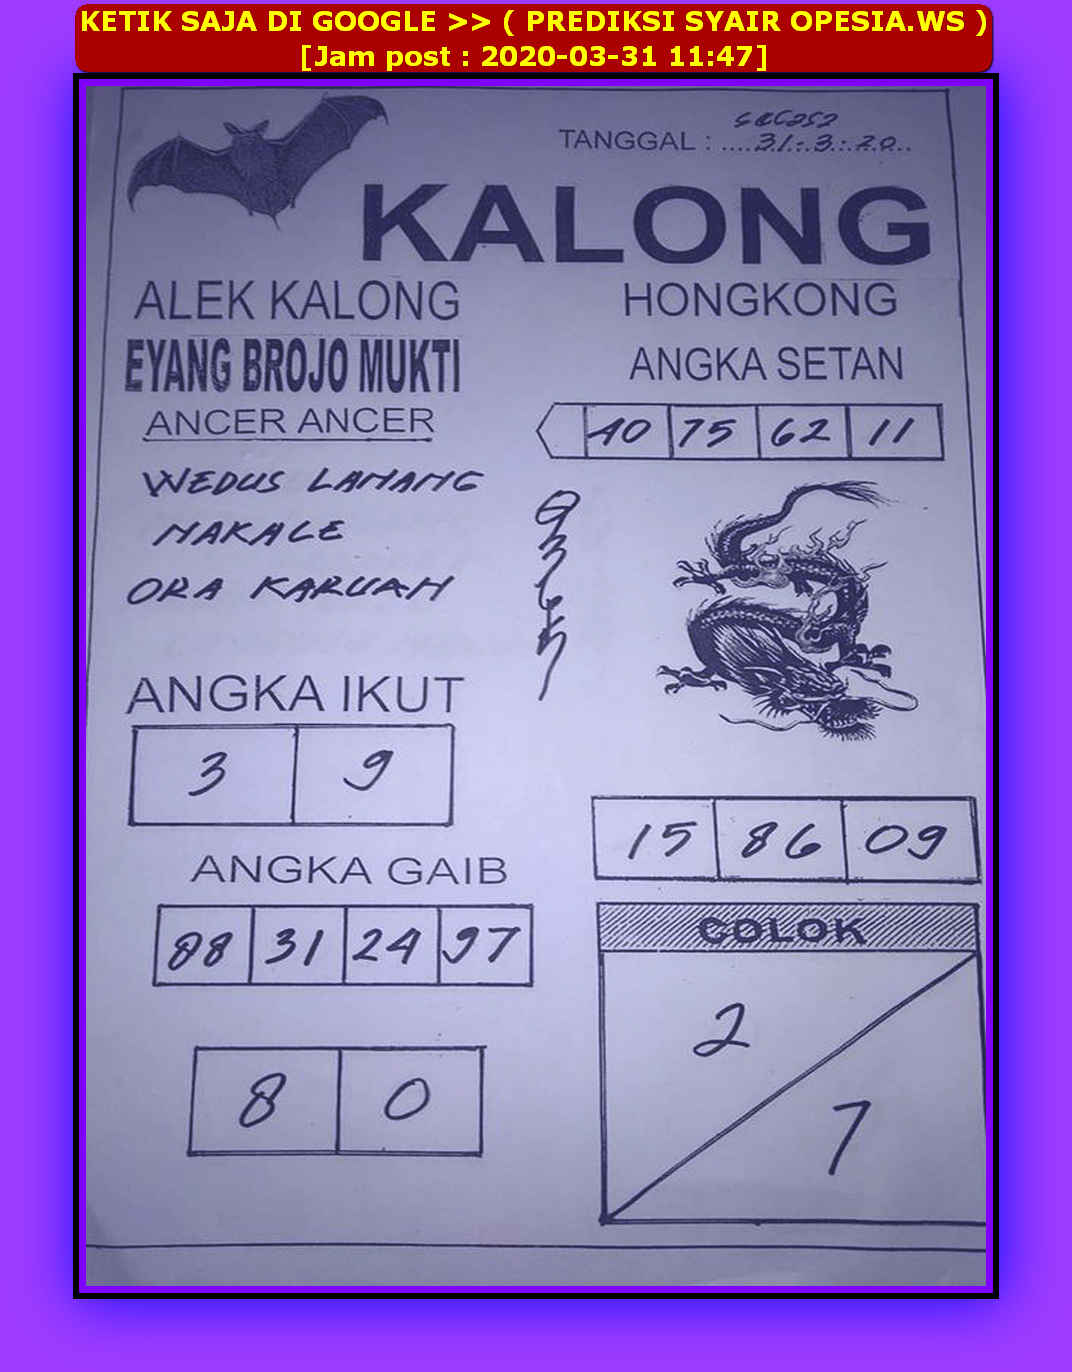 KETIK SAJA DI GOOGLE >> ( PREDIKSI SYAIR OPESIA.WS )
[Jam post : 2020-03-31 11:47]
SELASA
TANGGAL : ....31.:.3.:..20..
KALONG
ALEK KALONG
EYANG BROJO MUKTI
ANCER ANCER
WEDUS LANANG
NAKALE
ORA KARUAN
ANGKA IKUT
3 9
ANGKA GAIB
88 31 24 97
8 0
HONGKONG
ANGKA SETAN
40 75 62 11
15 86 09
COLOK
2
7